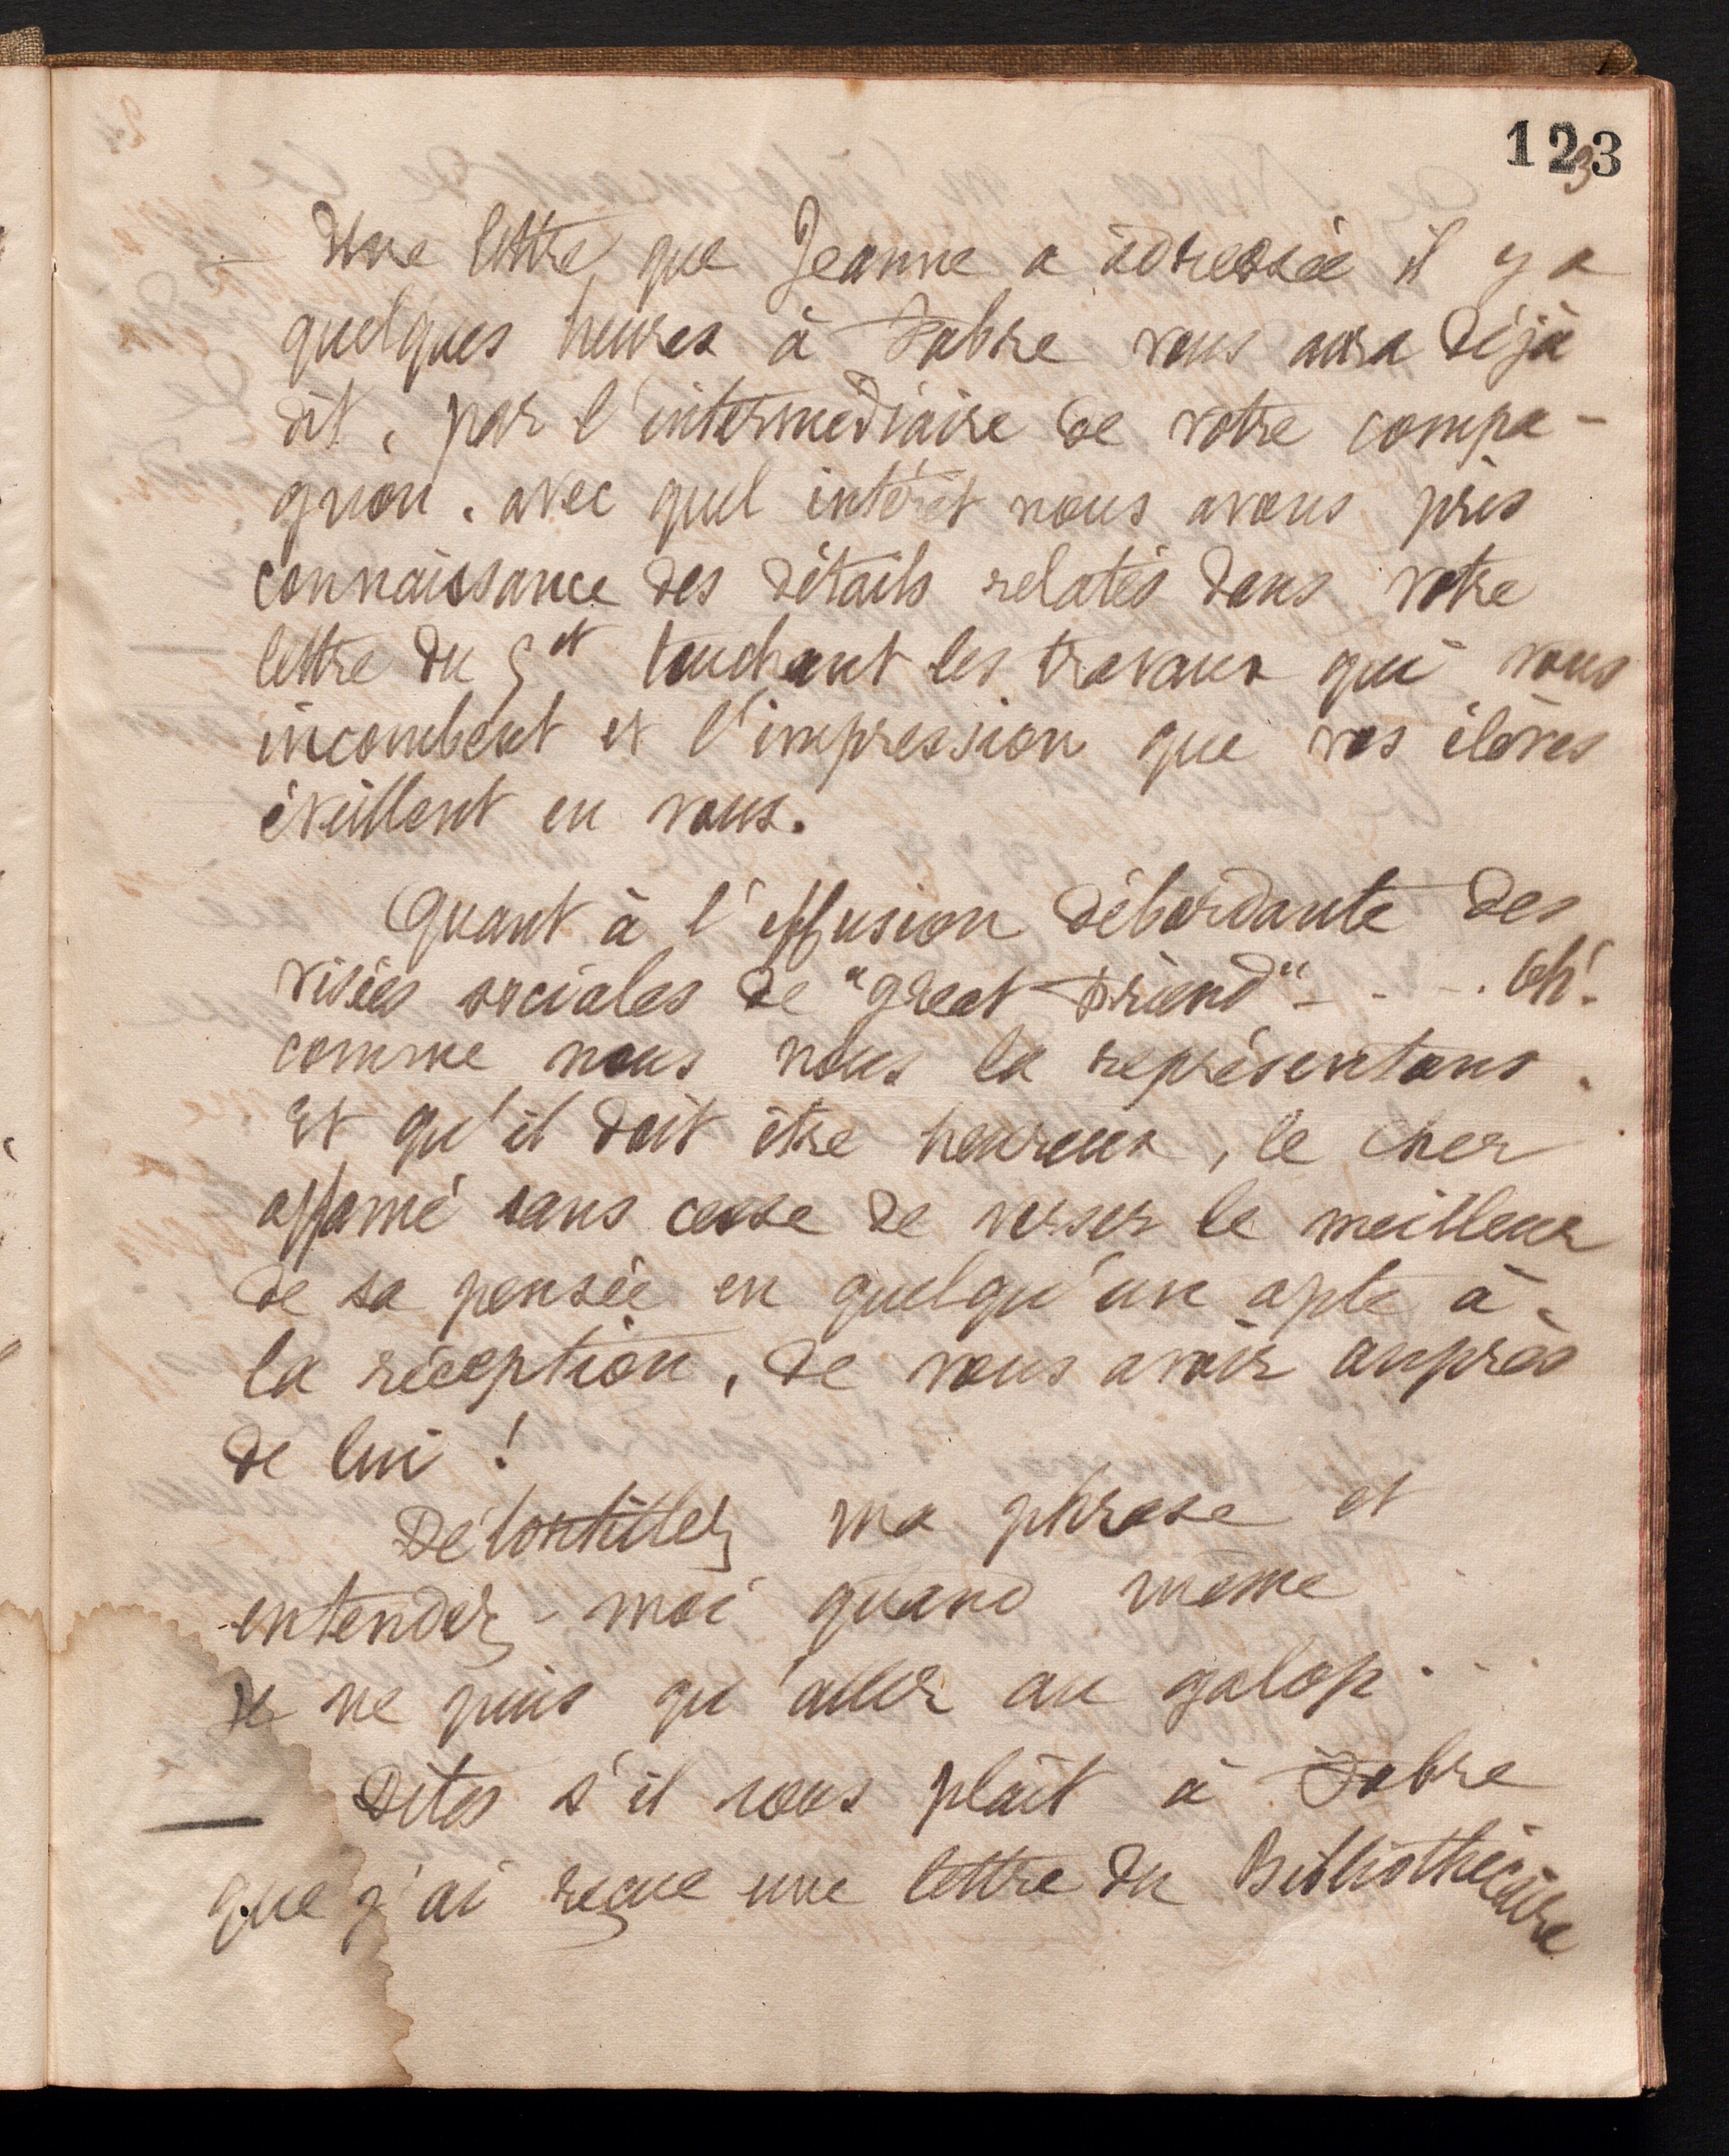 123
3
- Une lettre que Jeanne a adressée il y a
quelques heures à Fabre vous aura déjà
dit, par l'intermédiaire de votre compa-
gnon. avec quel intérêt nous avons pris
connaissance des détails relatés dans votre
lettre du touchant les travaux qui vous
incombent et l'impression que vos élèves
éveillent en vous.
Quant à l'effusion débordante des
visées sociales de "great Friend" - - - . Oh!
comme nous nous la représentons.
Et qu'il doit être heureux, le cher
affamé sans cesse de verser le meilleur
de sa pensée en quelqu'un apte à
la réception, de vous avoir auprès
de lui !
Détortillez ma phrase et
entendez-moi quand même
Je ne puis qu'aller au galop . . .
Dites s'il vous plaît à Fabre
que j'ai reçue une lettre du Bibliothécaire